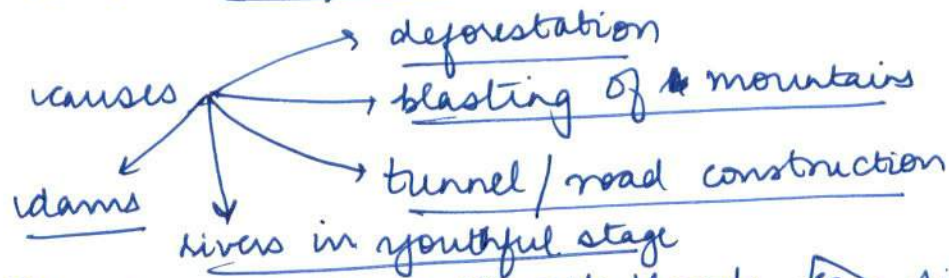 deforestation
causes
blasting of mountains
tunnel / road construction
dams
rivers in youthful stage